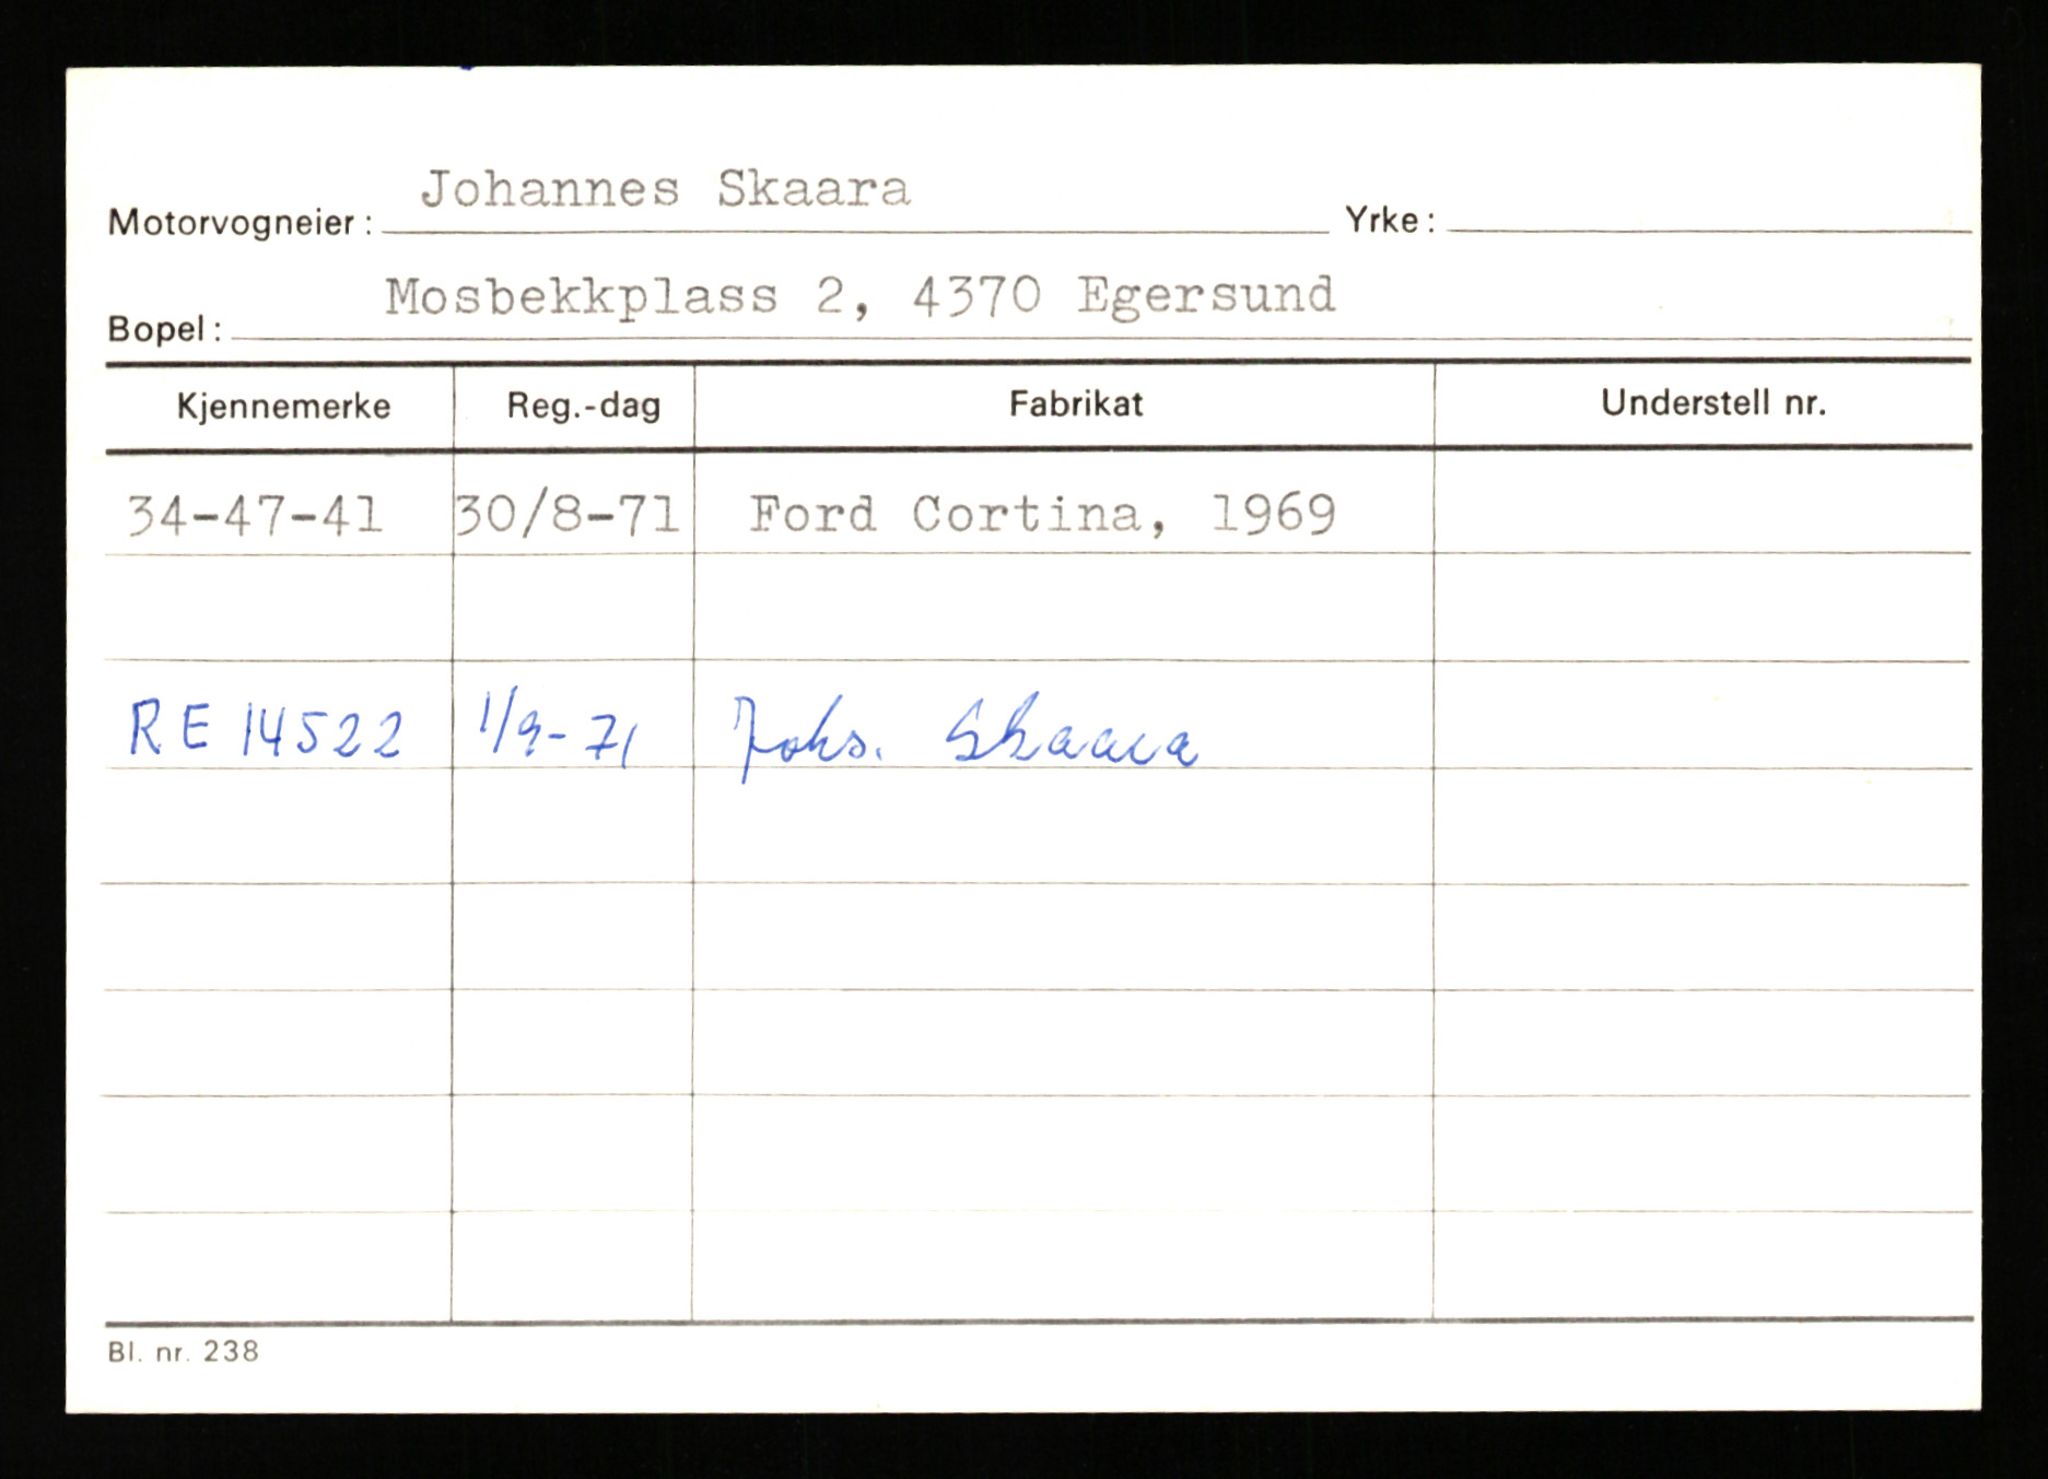 Motorvogneier: Johannes Skaara Yrke:
Bopel: Mosbekkplass 2, 4370 Egersund
Kjennemerke Reg.-dag Fabrikat Understell nr.
34-47-41 30/8-71 Ford Cortina, 1969
RE 14522 1/9-71 Johs. Skaara
Bl. nr. 238